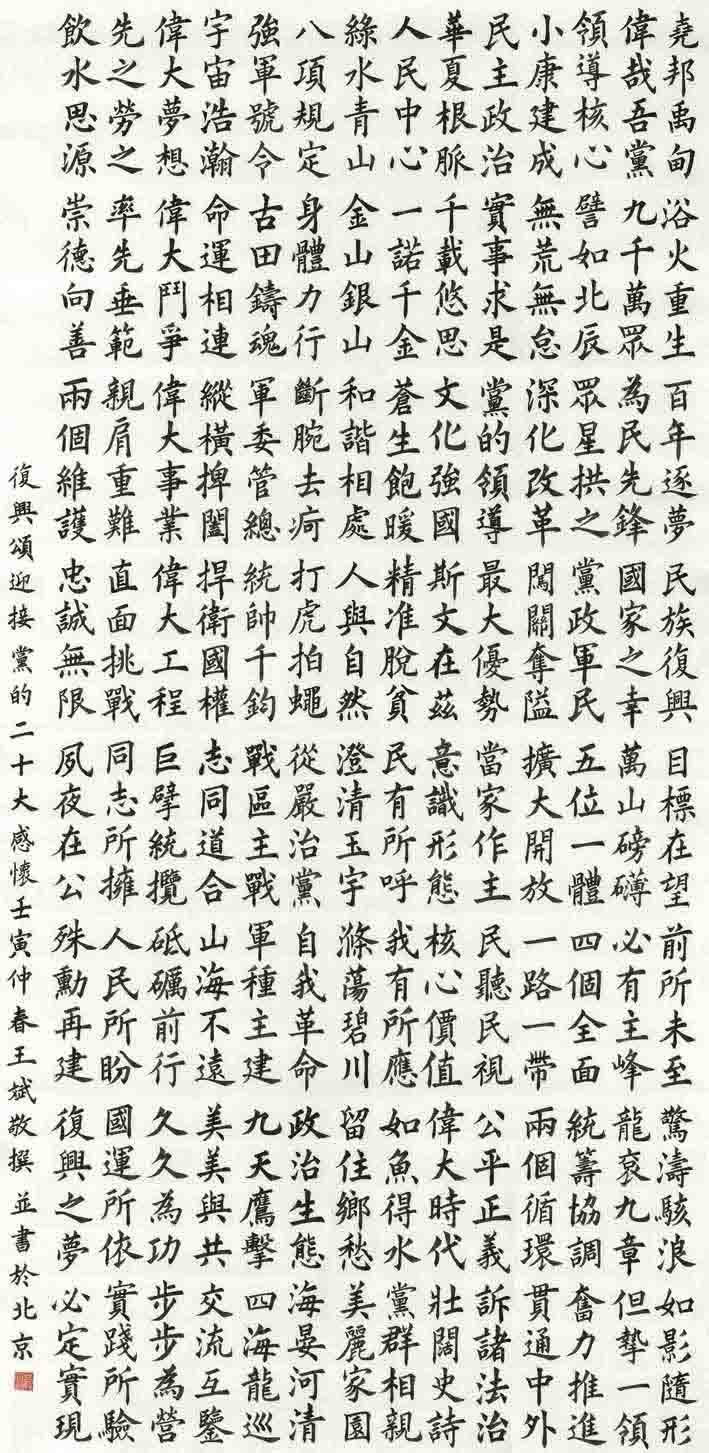 堯邦禹甸浴火重生百年逐夢民族復興目標在望前所未至驚濤駭浪如影隨形
偉哉吾黨九千萬眾為民先鋒國家之幸萬山磅礴必有主峰龍袞九章但摯一領
領導核心譬如北辰眾星拱之黨政軍民五位一體四個全面統籌協調奮力推進
小康建成無荒無怠深化改革闖關奪隘擴大開放一路一帶兩個循環貫通中外
民主政治實事求是黨的領導最大優勢當家作主民聽民視公平正義訴諸法治
華夏根脈千載悠思文化強國斯文在茲意識形態核心價值偉大時代壯闊史詩
人民中心一諾千金蒼生飽暖精准脫貧民有所呼我有所應如魚得水黨群相親
綠水青山金山銀山和諧相處人與自然澄清玉宇滌蕩碧川留住鄉愁美麗家園
八項規定身體力行斷腕去疴打虎拍蠅從嚴治黨自我革命政治生態海晏河清
強軍號令古田鑄魂軍委管總統帥千鈞戰區主戰軍種主建九天鷹擊四海龍巡
宇宙浩瀚命運相連縱橫捭闔捍衛國權志同道合山海不遠美美與共交流互鑒
偉大夢想偉大鬥爭偉大事業偉大工程巨擘統攬砥礪前行久久為功步步為營
先之勞之率先垂範親肩重難直面挑戰同志所擁人民所盼國運所依實踐所驗
飲水思源崇德向善兩個維護忠誠無限夙夜在公殊勳再建復興之夢必定實現
復興頌迎接黨的二十大感懷壬寅仲春王斌敬撰並書於北京